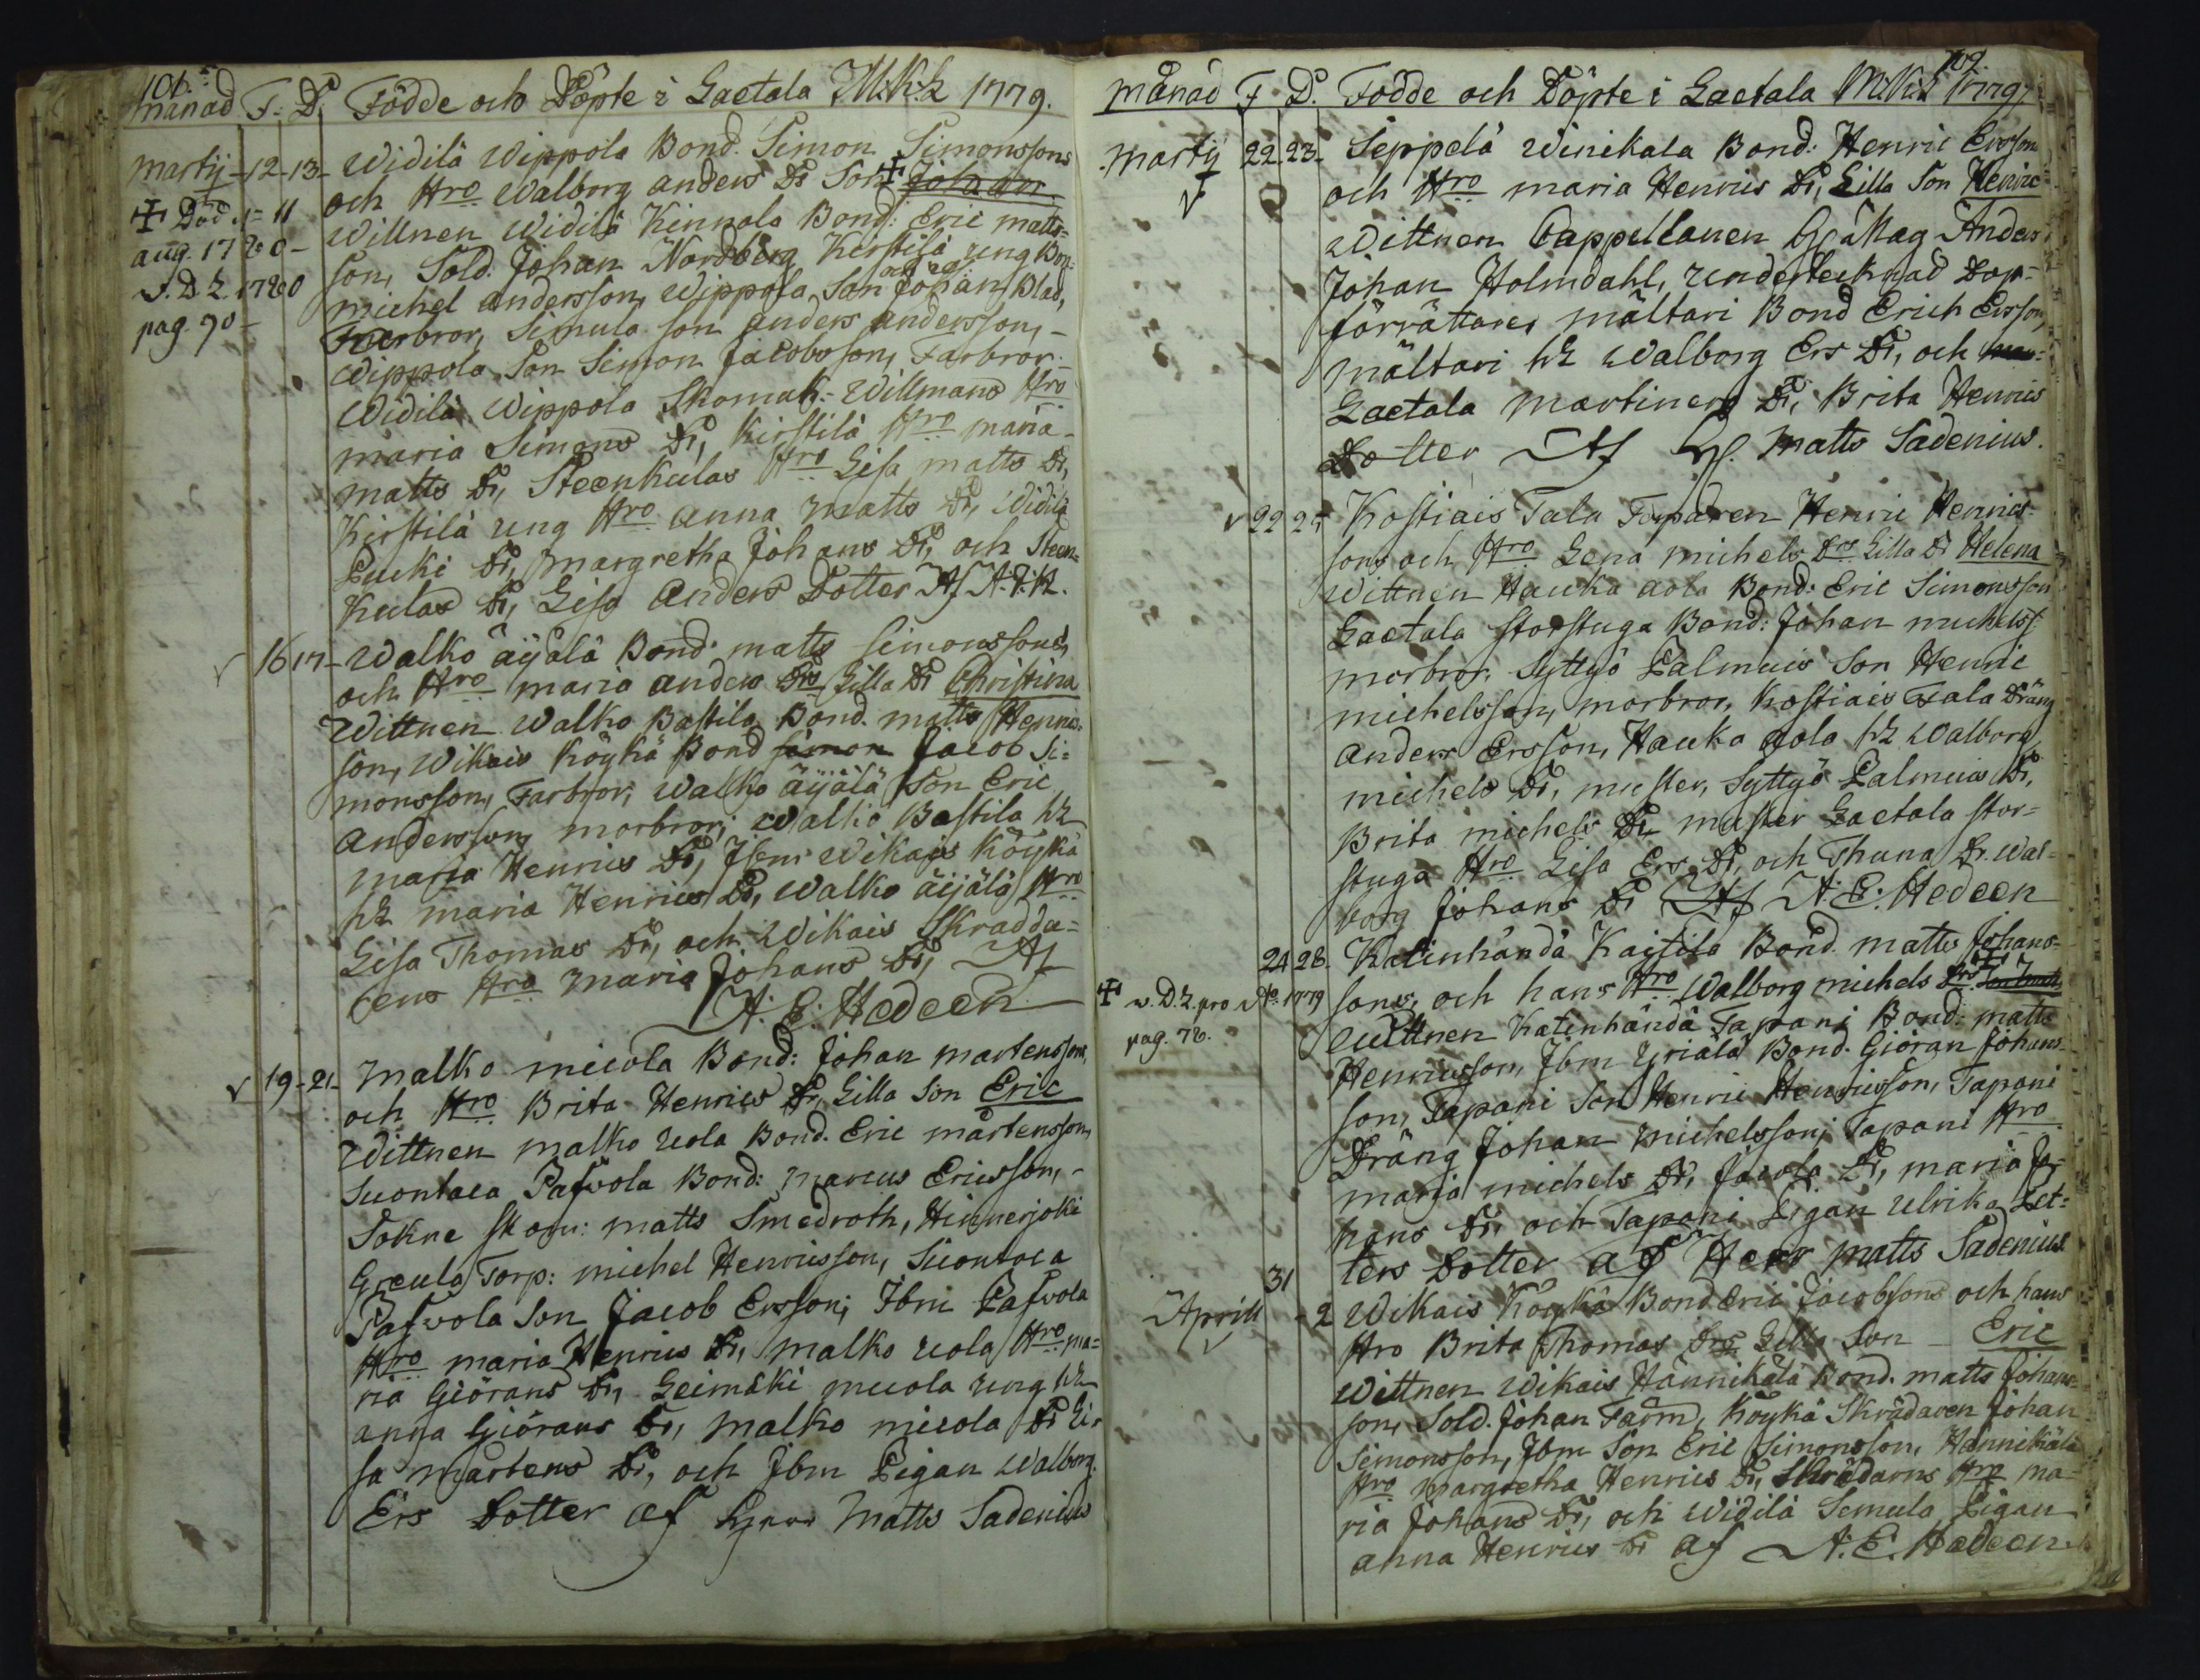 101.
månad F: D: Födde och Döpte i Laetala M:K:k 1779.
Martij 12 13 Widilä Wippola Bond. Simon Simonssons
och Hro Walborg anders Dr Son Johan
✠ Död d. 11 Wittnen Widilä Kinnola Bond: Eric matts-
aug. 1780 son, Sold. Johan Nordberg, Kirstilä ung Bon:
v. D. L. 1780 michel andersson, Wippola Son Johan Blad,
pag. 90 Farbror, Simula son anders andersson,
Wippola Son Simon Jacobsson, Farbror
Widilä Wippola Skomak: Willmans Hro
maria Simons Dr, Kirstilä Hro maria
matts Dr, Steenkulas Hro Lisa matts Dr,
Kirstilä ung Hro anna matts Dr, Widilä
Pucki Dr, margretha Johans Dr, och Steen-
kulas Dr, Lisa anders Dotter Af
16 17 Walko äijälä Bond: matts simonssons
och Hro maria anders Drs Lilla Dr Christina
Wittnen Walko Bastila Bond. matts Henrics-
son, Wikais Köykä Bond simon Jacob Si-
monsson, Farbror, Walko äijälä Son Eric
andersson morbror; Walko Bastila hk
maria Henrics Dr, Jbm Wikais Köykä
hk maria Henrics Dr, Walko äijälä Hro
Lisa Thomas Dr, och Wikais Skradda-
rens Hro maria Johans Dr, Af
A: E: Hedeen
19 21 malko micola Bond: Johan martenssons
och Hro Brita Henrics Dr, Lilla Son Eric
Wittnen malko uola Bond. Eric mårtensson,
Suontaca Pafvola Bond: marcus Ericsson,
Sokne skom: matts Smedroth, Hinnerjoki
Greula Torp: michel Henricsson, Suontaca
Pafvola Son Jacob Ersson; Jbm Pafvola
Hro maria Henrics Dr, malko uola Hro ma-
ria Giörans Dr, Leimäki micola ung hk
anna Giörans Dr, malko micola Dr Li-
sa mårtens Dr, och Jbm Pigan Walborg
Ers Dotter af Herr Matts Sadenius
109.
månad F D. Födde och Döpte i Laetala M:K:k 1779
martij 22 23 Seppelä Winikala Bond: Henric Ersson
och Hro maria Henrics Dr, Lilla Son Henric
Wittnen Cappellanen Anders
Johan Holmdahl, undertecknad Dop-
förrättare, mältari Bond Erich Ersson,
mältari hk Walborg Ers Dr, och
Laetala martinens Dr, Brita Henrics
Dotter Af H. Matts Sadenius.
22 25 Kostiais Tala Torparen Henric Henrics-
sons och Hro Lena michels Drs Lilla Dr Helena
Wittnen Hauka aola Bond: Eric Simonsson
Laetala storstuga Bond: Johan michelss.
morbror, Syttyö Palmuis Son Henric
michelsson, morbror, Kostiais Tala Dräng
anders Ersson, Hauka aola hk Walborg
michels Dr, muster, Syttyö Palmuis Dr,
Brita michels Dr, muster Laetala stor-
stuga Hro Lisa Ers Dr, och Thuna Dr. Wal-
borg Johans Dr Af A: E: Hedeen
24 28 Katinhändä Kaisila Bond. matts Johans-
✠ v. D. L. pro Ao 1779 sons, och hans Hro Walborg michels Drs
pag. 78. Wittnen Katinhändä Tapani Bond: matts
Henricsson, Jbm Uriälä Bond. Giöran Johans-
son, Tapani Son Henric Henricsson, Tapani
Dräng Johan michelsson, Tapani Hro
maria michels Dr, Dr, maria Jo-
hans Dr, och Tapani Pigan Ulrika Let-
ters Dotter af Herr Matts Sadenius
31
Aprill 2 Wikais Köykä Bond Eric Jacobsons och hans
Hro Brita Thomas Drs Lilla Son Eric
Wittnen Wikais Hannikala Bond. matts Johans-
son, Sold. Johan Farm, Köykä Skrädaren Johan
Simonsson, Jbm Son Eric Simonsson, Hannikala
Hro margretha Henrics Dr, Skrädarns Hro ma-
ria Johans Dr, och Widilä Semula Pigan
anna Henrics Dr af A: E. Hedeen